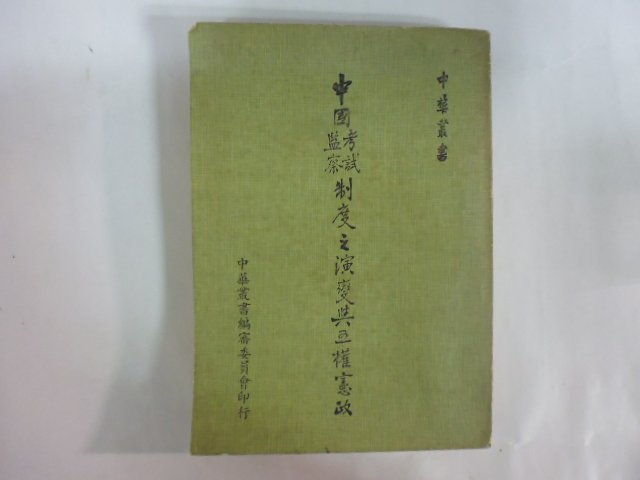 中華叢書
中國考試監察制度之演變與五權憲政
中華叢書編審委員會印行